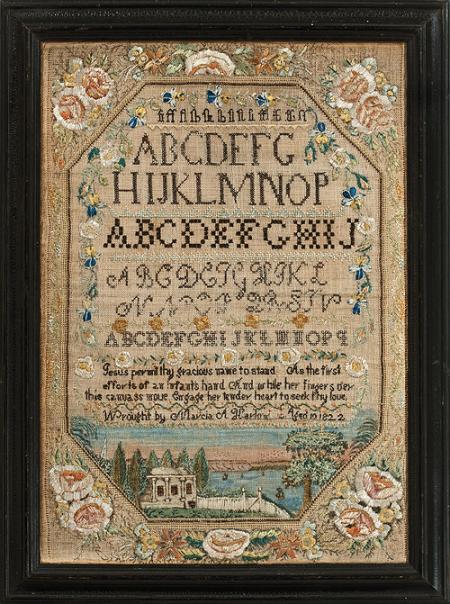 ABCDEFG
HIJKLMNOP
ABCDEFGHIJ
ABCDEFGHIKL
ABCDEFGHIJKLMNOPQ
Jesus permit thy gracious name to stand As the first
efforts of an infants hand And while her fingers oer
this canvass move Engage her tender heart to seek thy love
Wrought by Marcia A Aged 10 1822